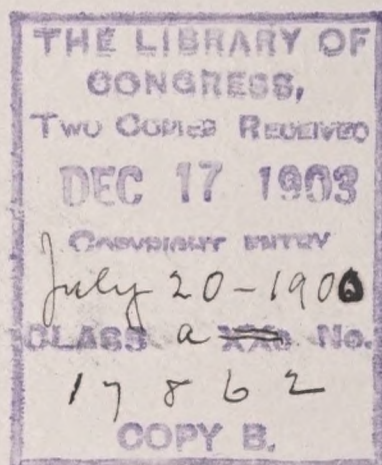 THE LIBRARY OF
CONGRESS,
TWO COPIES RECEIVED
DEC 17 1903
COPYRIGHT ENTRY
July 20-1900
CLASS a XXc No.
17862
COPY B.